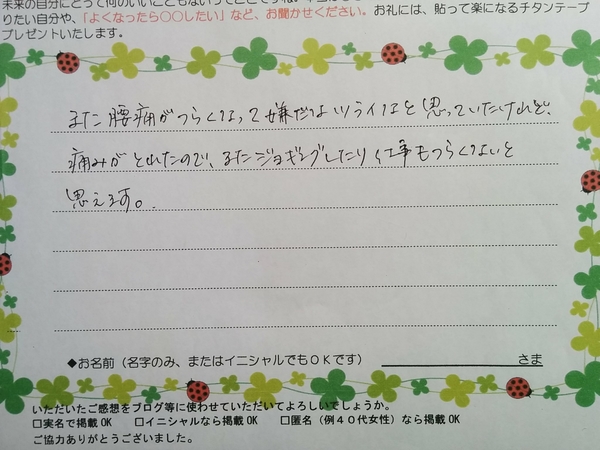 未来の自分にとって何のいいこともないってことですね。
りたい自分や、「よくなったら〇〇したい」など、お聞かせください。お礼には、貼って楽になるチタンテープ
プレゼントいたします。
また腰痛がつらくなって嫌だなツライなと思っていたけれど、
痛みがとれたので、またジョギングしたり仕事もつらくないと
思えます。
◆お名前（名字のみ、またはイニシャルでもＯＫです） さま
いただいたご感想をブログ等に使わせていただいてよろしいでしょうか。
□実名で掲載 OK □イニシャルなら掲載 OK □匿名（例４０代女性）なら掲載 OK
ご協力ありがとうございました。